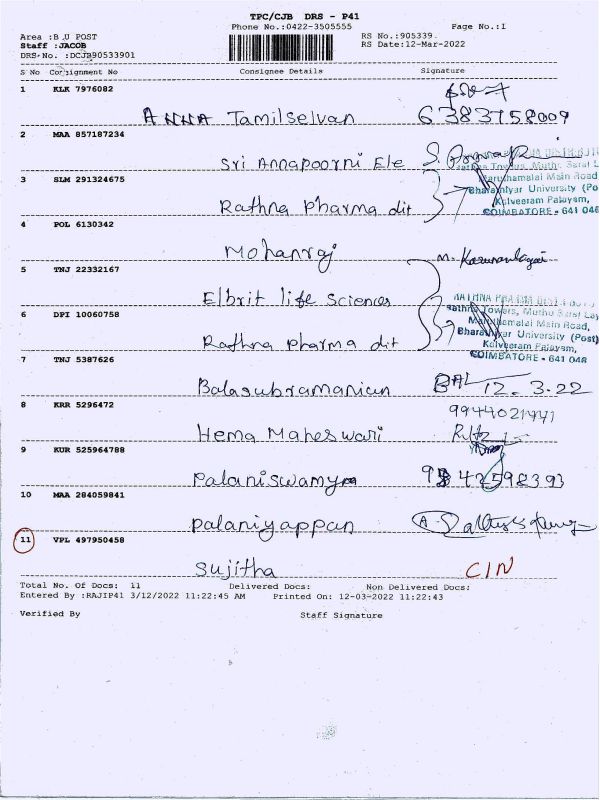 TPC/CJB DRS - P41
Phone No.:0422-3505555 Page No.:1
Area :B.U POST RS No.:905339.
Staff :JACOB RS Date:12-Mar-2022
DRS No. :DCJB90533901
S No Consignment No Consignee Details Signature
1 KLK 7976082
ANNA Tamilselvan 6383758009
2 MAA 857187234
Sri Annapoorni Ele
3 SLM 291324675
Rathna pharma dit
Maruthamalai Main Road
Bharathiyar University (Po
Kalveeram Palayam,
COIMBATORE - 641 046
4 POL 6130342
Mohanraj
5 TNJ 22332167
Elbrit life sciences
6 DPI 10060758
Rathna pharma dit
Rathna Towers, Muthu Saral Lay
Maruthamalai Main Road,
Bharathiyar University (Post)
Kalveeram Palayam,
COIMBATORE - 641 046
7 TNJ 5387626
Balasubramanian BAL 12.3.22
8 KRR 5296472 9944021441
Hema Maheswari
9 KUR 525964788
Palaniswamy
10 MAA 284059841
Palaniyappan
11 VPL 497950458
Sujitha CIN
Total No. of Docs: 11 Delivered Docs: Non Delivered Docs:
Entered By :RAJIP41 3/12/2022 11:22:45 AM Printed On: 12-03-2022 11:22:43
Verified By Staff Signature